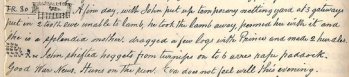 FR. 30 A fine day, with John put up temporary netting yard at 3 gateways
put in 2 d ewe unable to lamb, he took the lamb away, penned her with it and
she is a splendid mother, dragged a few logs with Prince and made 2 hurdles.
John shifted hoggets from turnips on to 6 acres rape paddock.
Good War News, Huns on the run. Eva does not feel well this evening.